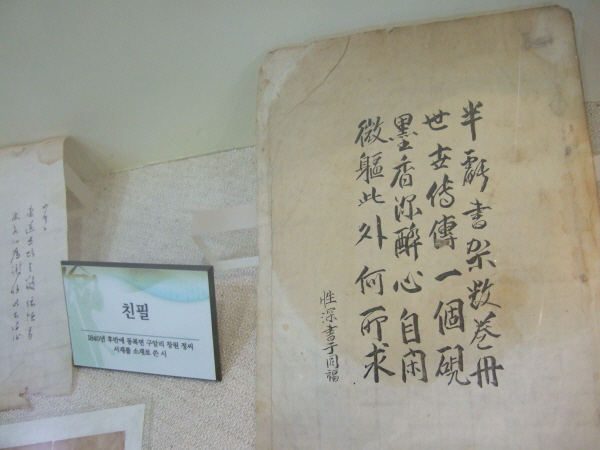 半書架數卷冊
世世傳傳一個硯
墨香深醉心自閑
微軀此外何所求
性深書于同福
친필
1840년 후반에 동복면 구암리 창원 정씨
서재를 소재로 쓴 시